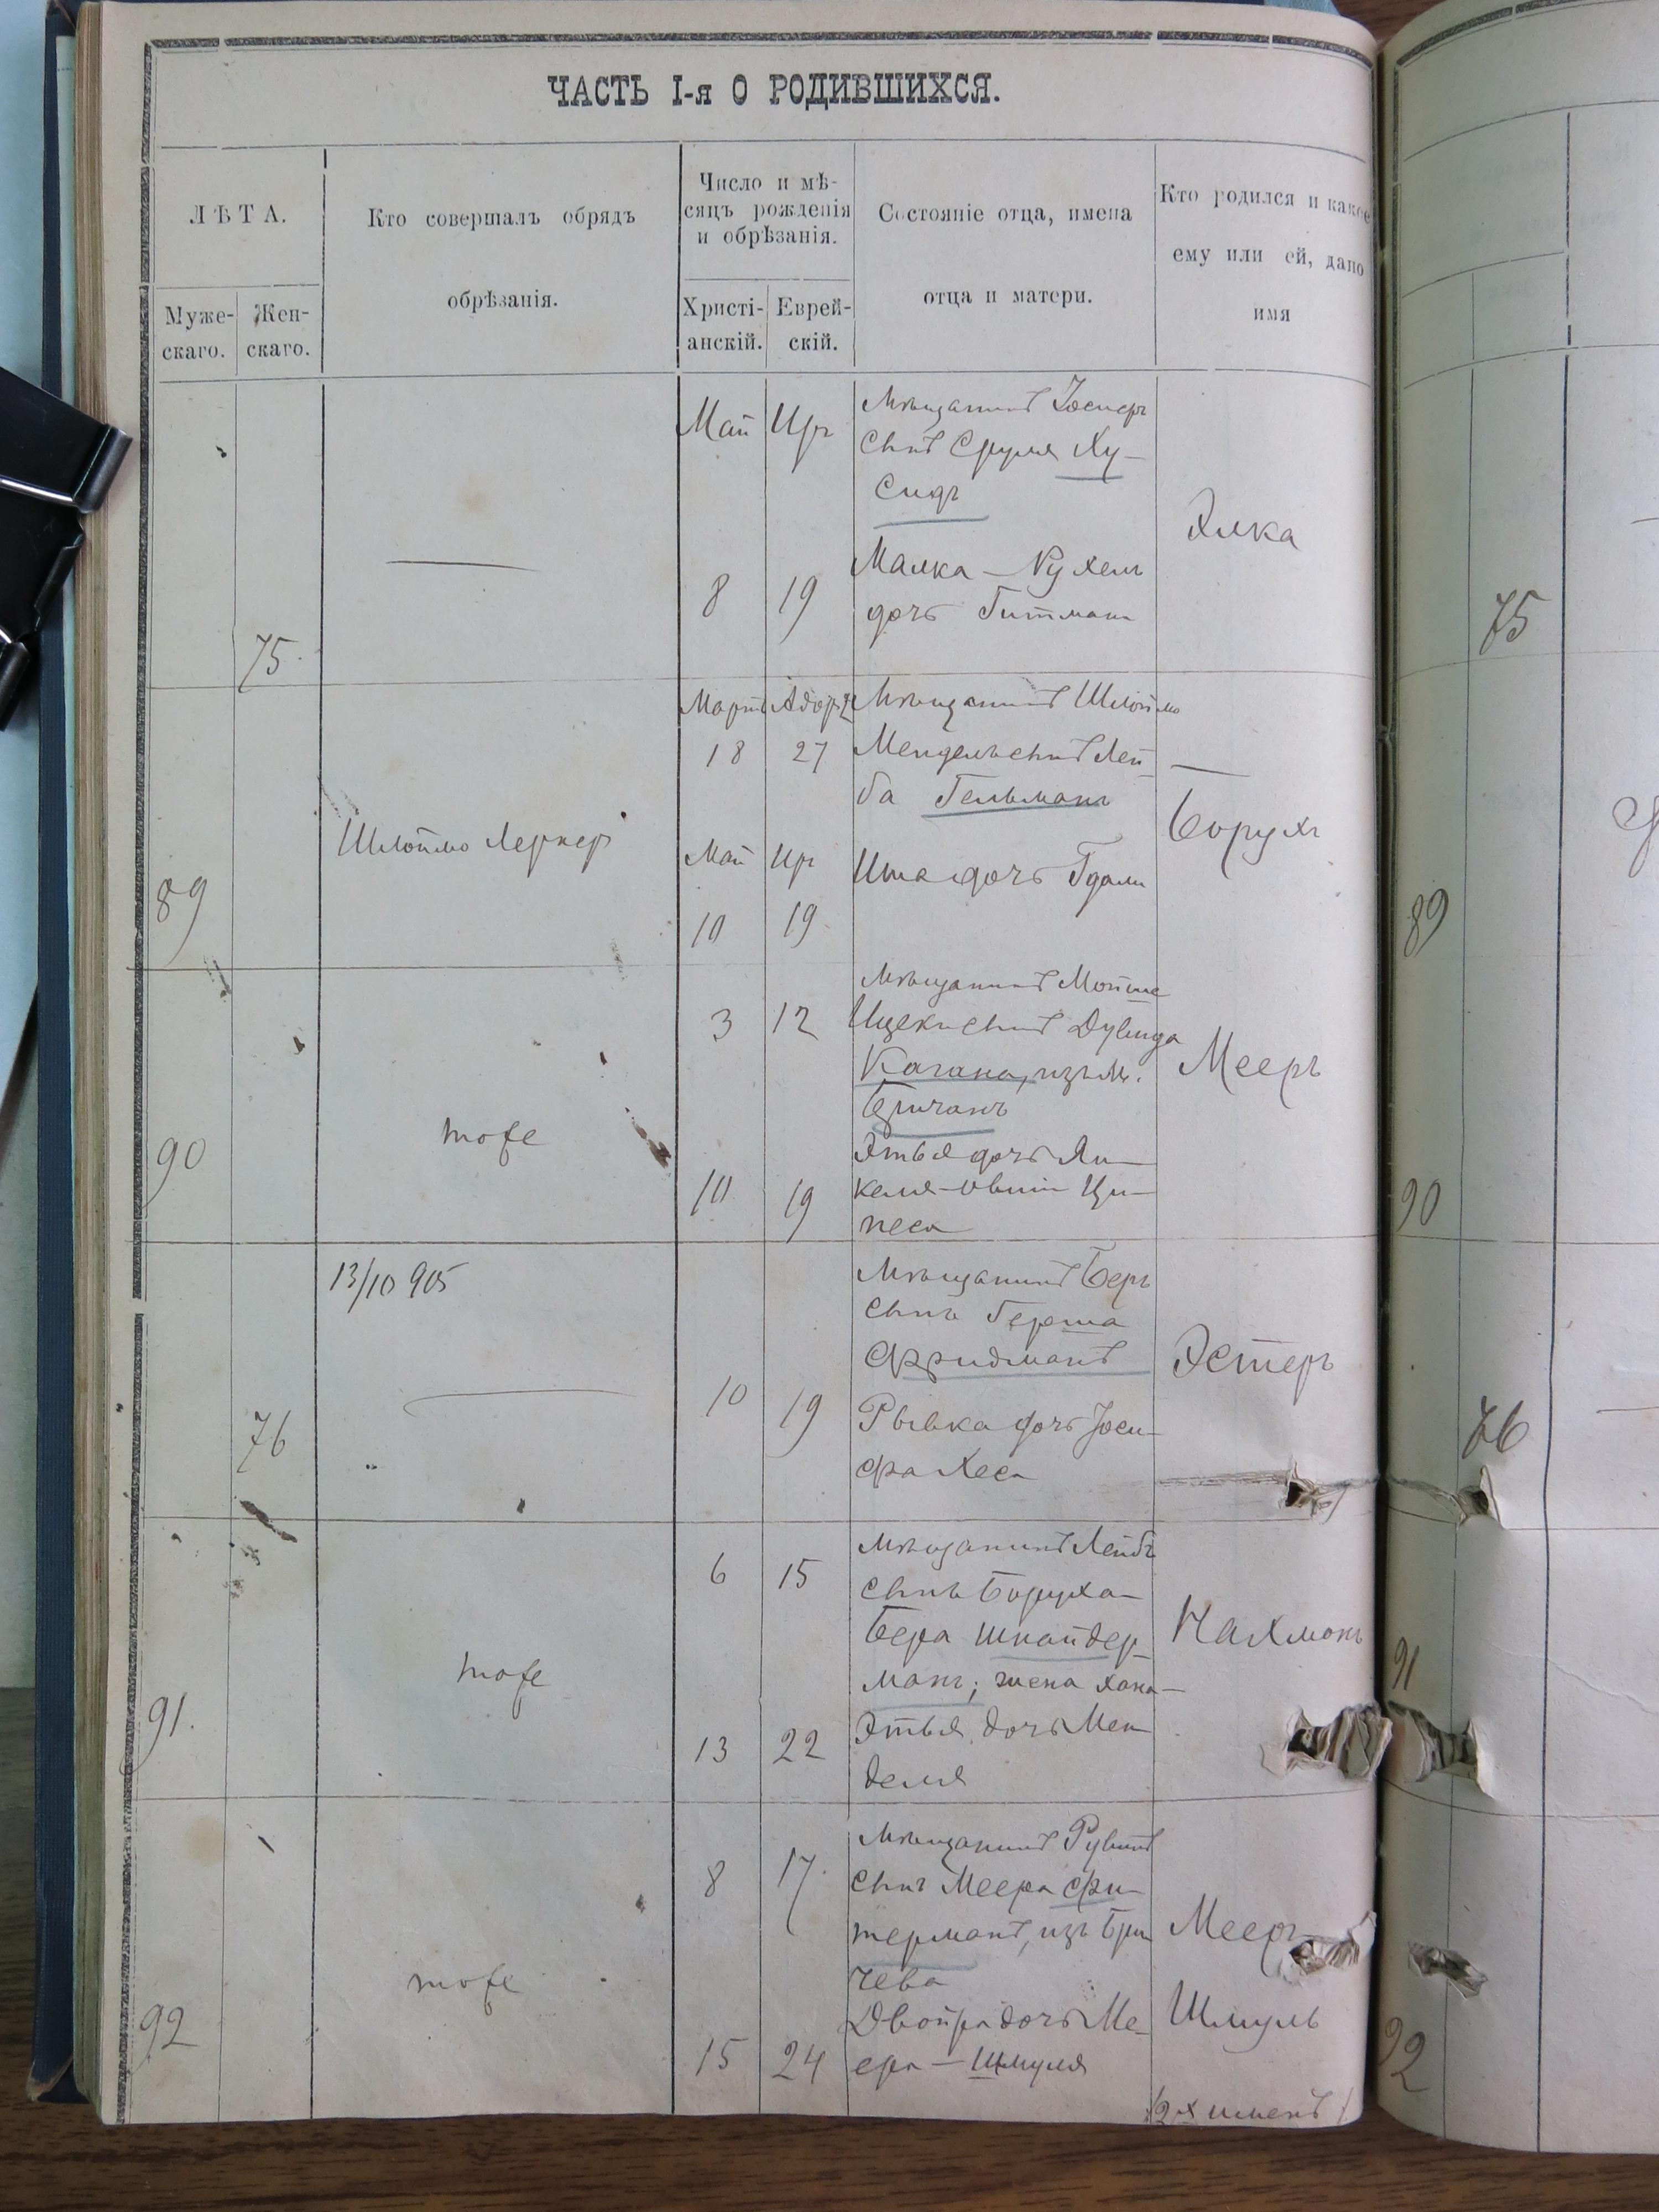 ЧАСТЬ I-я О РОДИВШИХСЯ.
ЛѢТА.
Муже-
скаго.
Жен-
скаго.
Кто совершалъ обрядъ
обрѣзанія.
Число и мѣ-
сяцъ рожденія
и обрѣзанія.
Христі-
анскій.
Еврей-
скій.
Состояніе отца, имена
отца и матери.
Кто родился и какое
ему или ей, дано
имя
75.
Май Ир
8 19
Мѣщанинъ Іосиеръ
сынъ Сруля Ху-
сидъ
Малка - Рухель
дочь Гитмана
Элка
75
89
Шлоймо Лернеръ
Мартъ Адоръ 2
18 27
Май Ир
10 19
Мѣщанинъ Шлоймо
Мендель сынъ Лей-
ба Гельманъ
Ита дочь Гдали
Борухъ
89
90
тоже
3 12
10 19
Мѣщанинъ Мойше
Ицекъ сынъ Дувида
Кагана, изъ м.
Бричанъ
Этья дочь Ян-
келя-Овши Ци-
песа
Мееръ
90
13/10 905
76
10 19
Мѣщанинъ Беръ
сынъ Герша
Фридманъ
Рывка дочь Іоси-
фа Хеса
Эстеръ
76
91.
тоже
6 15
13 22
Мѣщанинъ Лейбъ
сынъ Боруха-
Бера Шнайдер-
манъ; жена Хана-
Этья дочь Мен-
деля
Нахмонъ
91
92
тоже
8 17.
15 24
Мѣщанинъ Рувинъ
сынъ Меера Фи-
терманъ, изъ Бри
чева
Двойра дочь Ме-
ера - Шмуля
Мееръ-
Шмуль
/2х именъ/
92